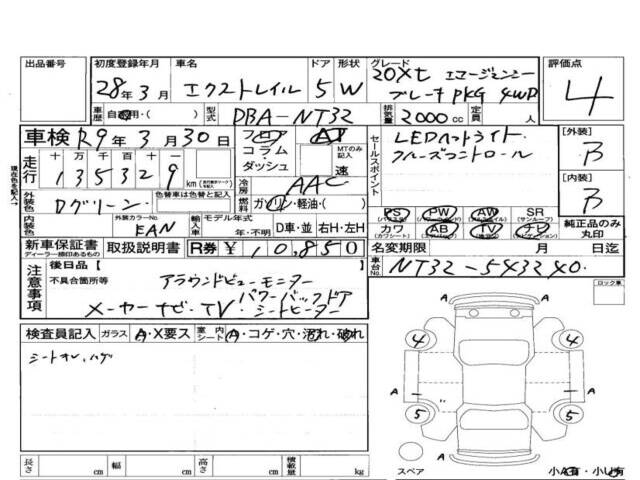 出品番号
初度登録年月 28年 3月
車名 エクストレイル
ドア 5
形状 W
グレード 20Xt エマージェンシーブレーキPKG 4WD
評価点 4
車歴 自家用・( )
型式 DBA-NT32
排気量 2000cc
定員 人
車検 R9年 3月 30日
フロア コラム・ダッシュ
AT
MTのみ記入 速
走行 十 万 千 百 十 一
135329 km
冷房 AAC
燃料 ガソリン・軽油・( )
セールスポイント
LEDヘッドライト・
クルーズコントロール
[外装] B
[内装] B
現在色を記入→
外装色 Dグリーン
色替車は色替と記入
外装カラーNo. EAN
内装色
輸入車 モデル年式 年・不明
D車・並 右H・左H
PS PW AW SR (サンルーフ)
カワ (カワシート) AB TV ナビ
純正品のみ丸印
新車保証書 ディーラー捺印あるもの
取扱説明書
R券 ¥10,850
名変期限 月 日迄
車台No. NT32-543240
注意事項
後日品【 】
不具合箇所等
アラウンドビューモニター
パワーバックドア
メーカーナビ・TV・シートヒーター
ロック車
検査員記入 ガラス A・X要ス 室内シート A・コゲ・穴・汚れ・破れ
シートオレ、ハゲ
4 4
A A
A A
5 5
長さ cm 幅 cm 高さ cm 積載量 kg
スペア
小A有・小U有